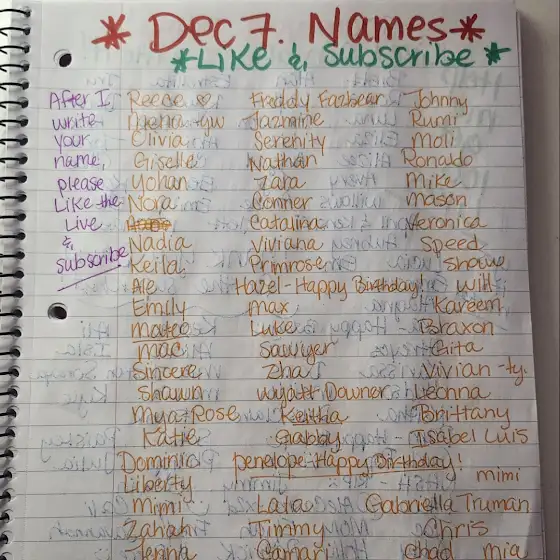 * Dec 7. Names *
* Like & Subscribe *
After I
write
your
name,
please
Like the
Live
&
subscribe
Reece ♡
Olivia
Giselle
Yohan
Nora
Nadia
Keila
Ale
Emily
mateo
mac
Sincere
Shawn
Mya-Rose
Katie
Dominic
Liberty
Mimi
Zahah
Jenna
Freddy Fazbear
Jazmine
Serenity
Nathan
Zara
Conner
Catalina
Viviana
Primrose
Hazel-Happy Birthday!
max
Luke
Sawyer
Zha
Wyatt Downer
Keitha
Gabby
penelope-Happy Birthday!
Timmy
Camari
Johnny
Rumi
Moli
Ronaldo
Mike
mason
Veronica
Speed
will
Kareem
Braxon
Gita
Vivian -ty.
Leonna
Brittany
Isabel Luis
mimi
Gabriella Truman
Chris
mia